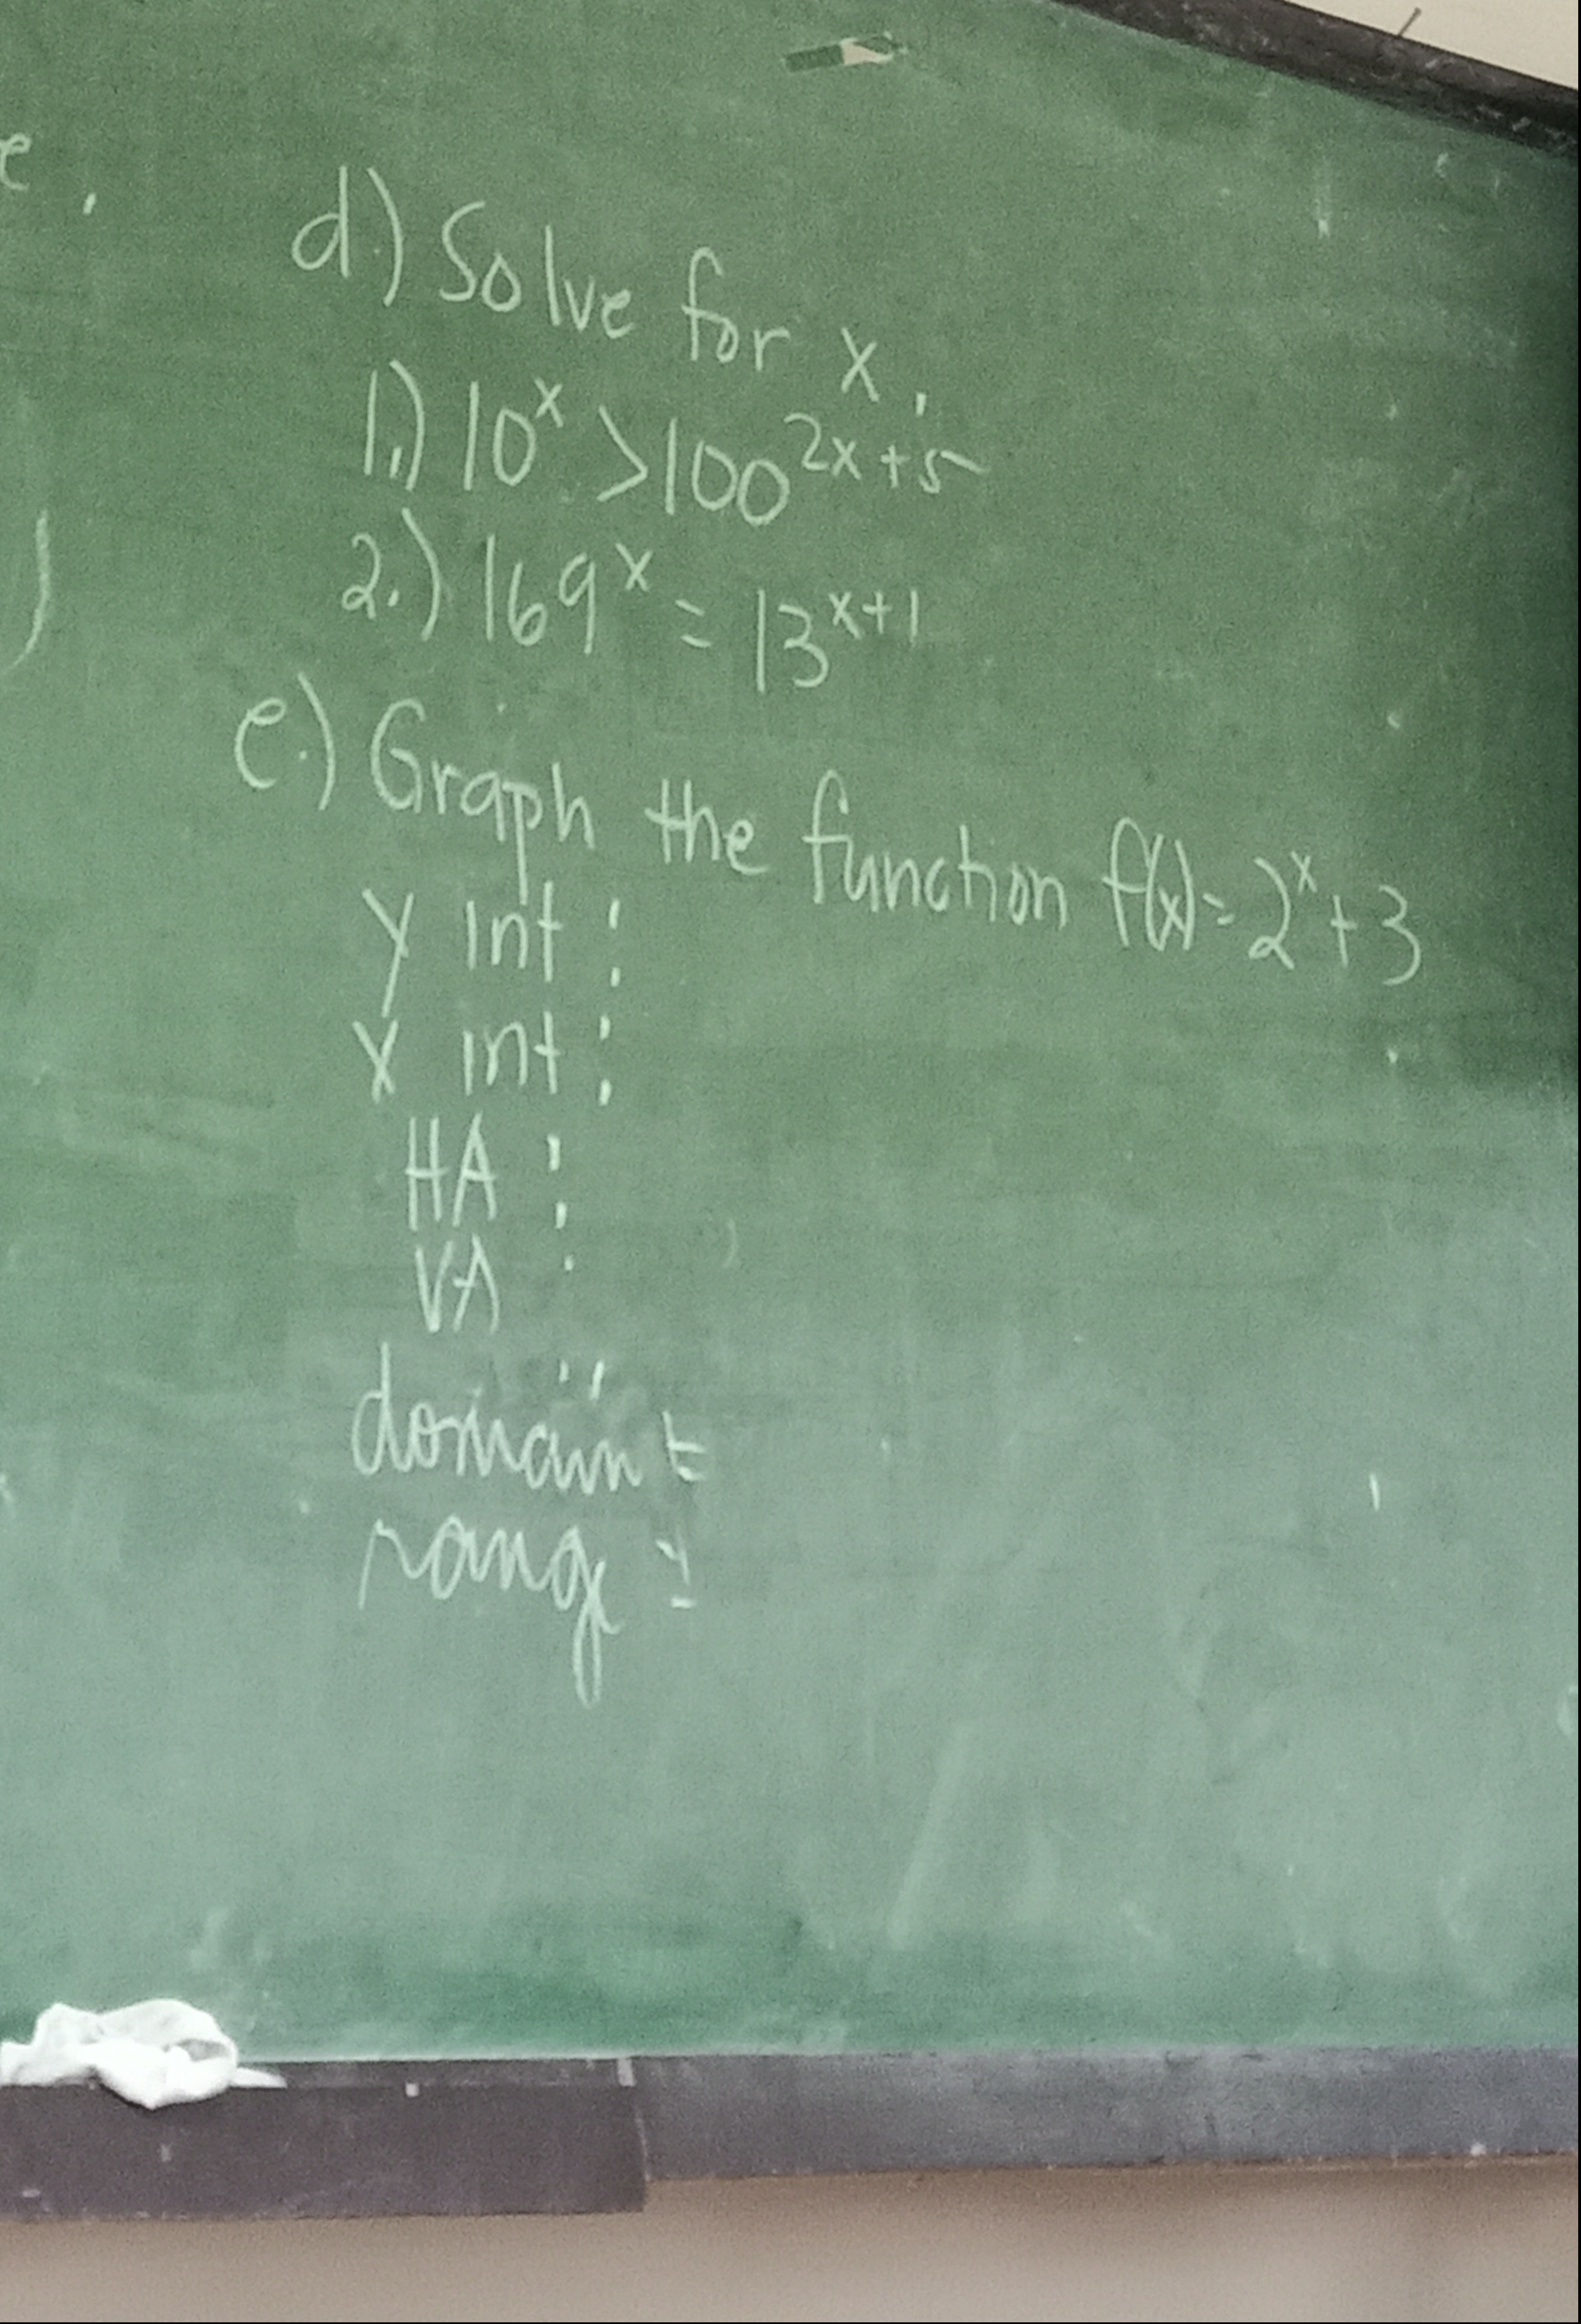 e.
)
d.) Solve for x.
1.) 10^x > 100^2x+5
2.) 169^x = 13^x+1
e.) Graph the function f(x) = 2^x + 3
y int :
x int :
HA :
VA :
domain :
rang :